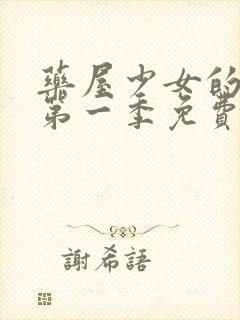 藥屋少女的
第一季免費
謝希語